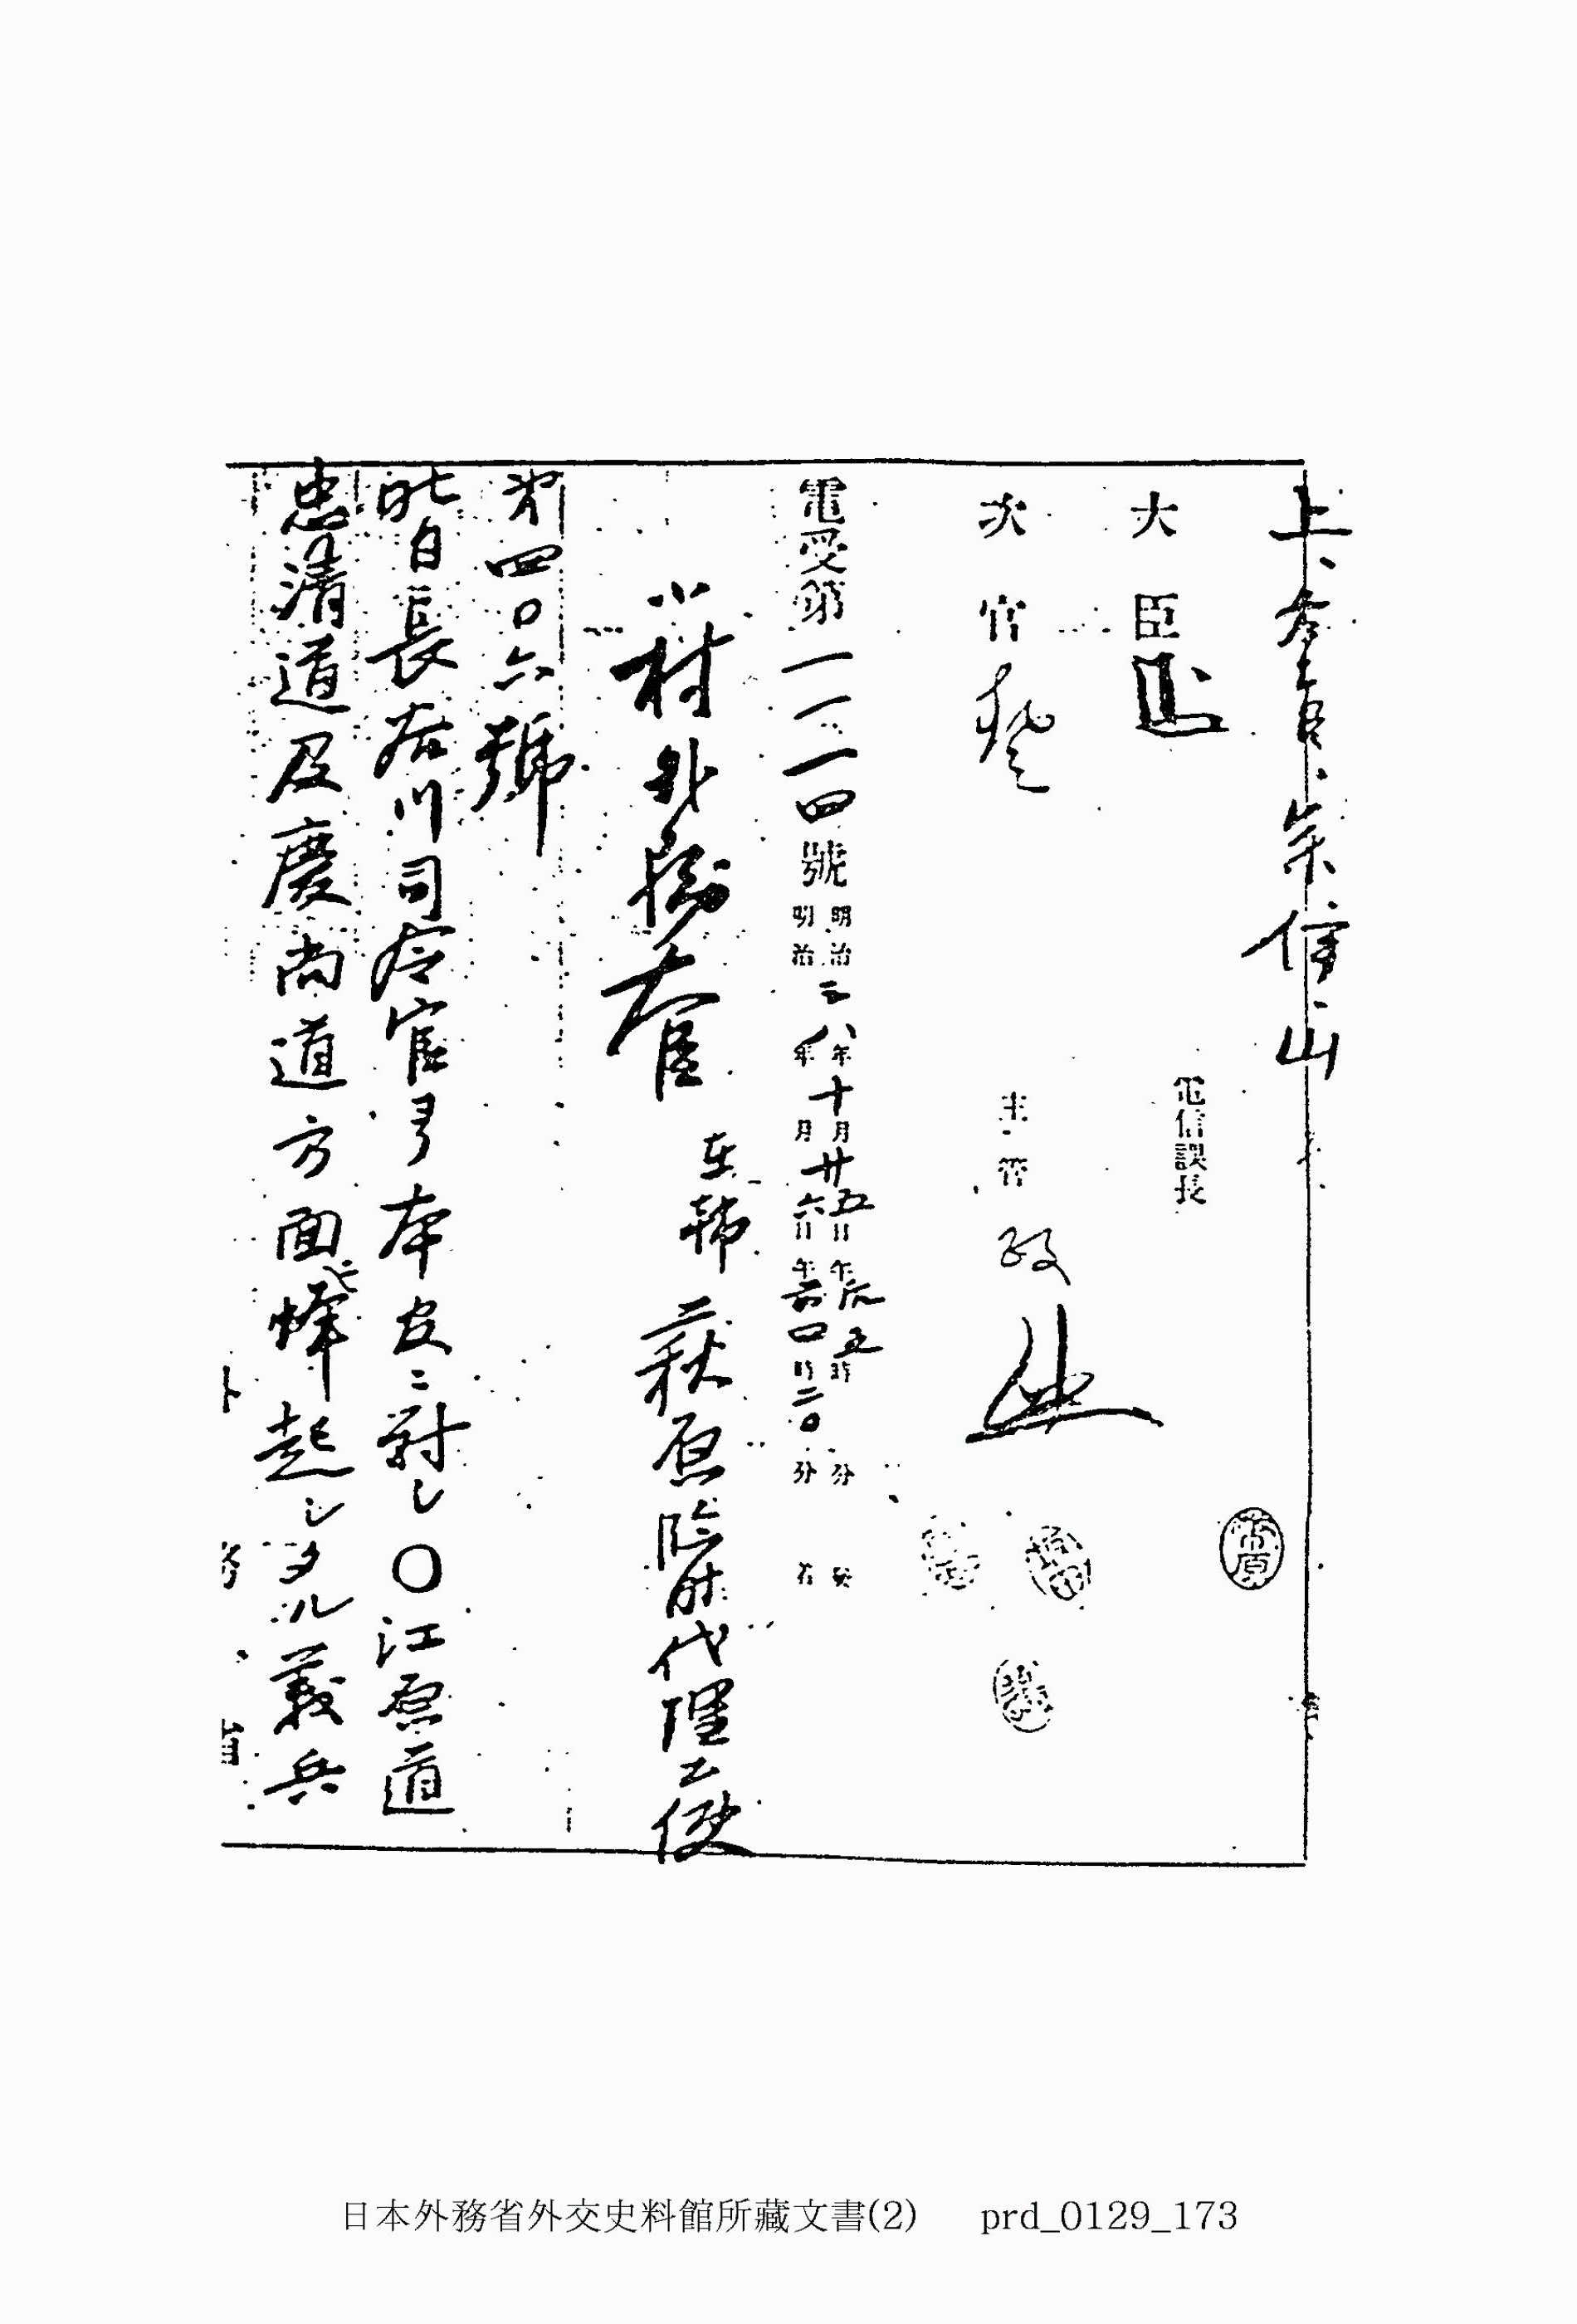 上、参官、宋、信、山
大臣
電信課長
次官
主管 政
電受第一一一四號
明治三八年十月廿五日午后五時 分發
明治 年 月廿六日午前四時二〇分着
小村外務大臣
在韓 萩原臨時代理公使
第四〇六號
昨日長谷川司令官ヨリ本官ニ對シ〇江原道
忠清道及慶尚道方面ニ蜂起シタル義兵
外務省
日本外務省外交史料館所藏文書(2) prd_0129_173